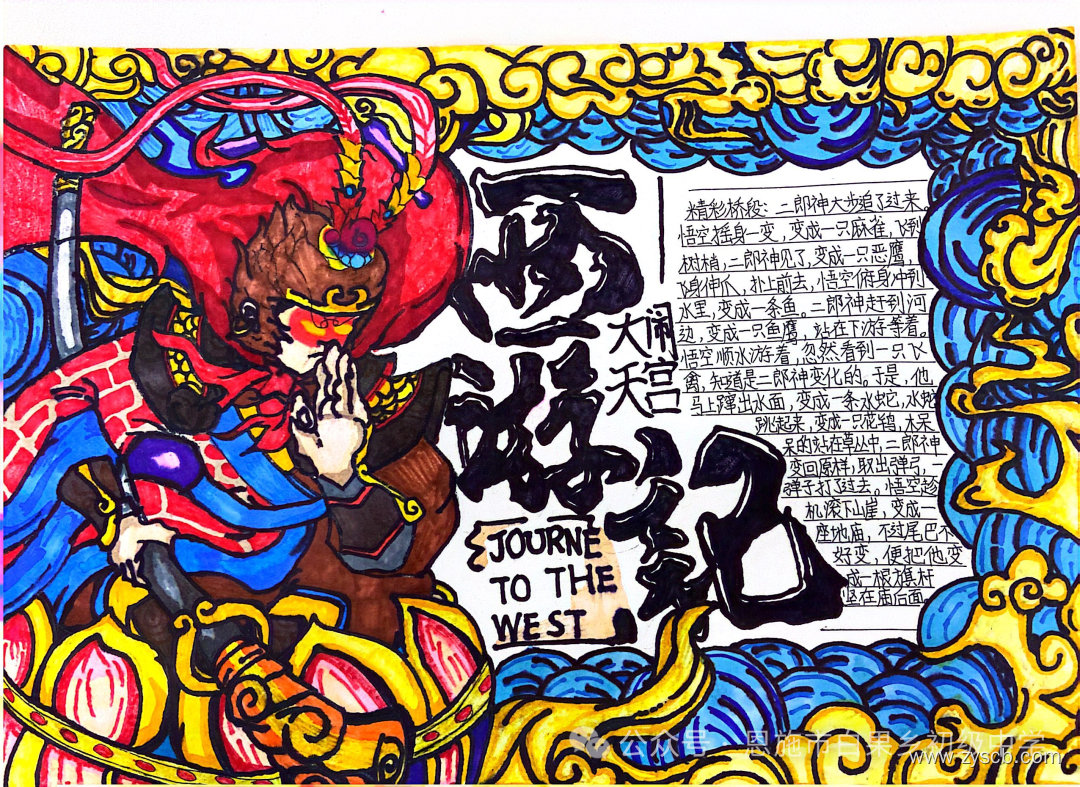 西游记
大闹天宫
JOURNE
TO THE
WEST
精彩桥段：二郎神大步追了过来，
悟空摇身一变，变成一只麻雀，飞到
树梢，二郎神见了，变成一只恶鹰，
飞身伸爪，扑上前去，悟空俯身冲到
水里，变成一条鱼。二郎神赶到河
边，变成一只鱼鹰，站在下游等着。
悟空顺水游着，忽然看到一只飞
禽，知道是二郎神变化的。于是，他
马上蹿出水面，变成一条水蛇，水蛇
跳起来，变成一只花鸨，木呆
呆的站在草丛中，二郎神
变回原样，取出弹弓，一
弹子打了过去。悟空趁
机滚下山崖，变成一
座地庙，不过尾巴不
好变，便把他变
成一根旗杆
竖在庙后面
公众号·恩施市白果乡初级中学
www.zyscb.com